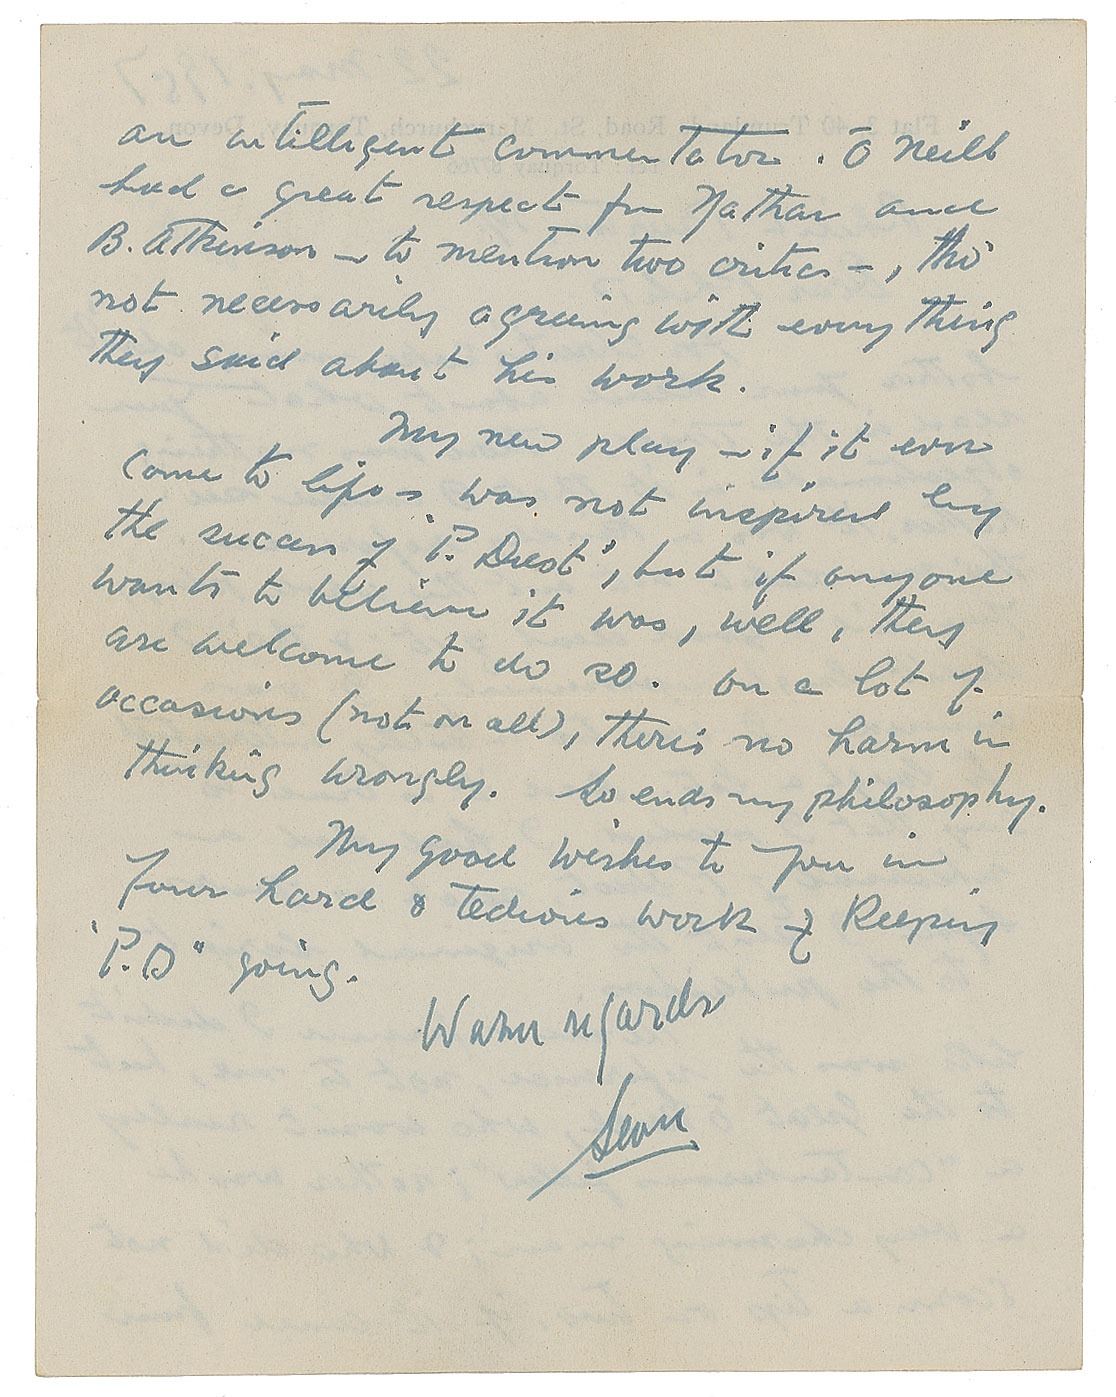 an intelligent commentator. O'Neill
had a great respect for Nathan and
B. Atkinson — to mention two critics —, tho'
not necessarily agreeing with everything
they said about his work.
My new play — if it ever
come to life — was not inspired by
the success of "P. Dust", but if anyone
wants to believe it was, well, they
are welcome to do so. On a lot of
occasions (not on all), there's no harm in
thinking wrongly. So ends my philosophy.
My good wishes to you in
your hard & tedious work of keeping
"P.D" going.
Warm regards
Sean